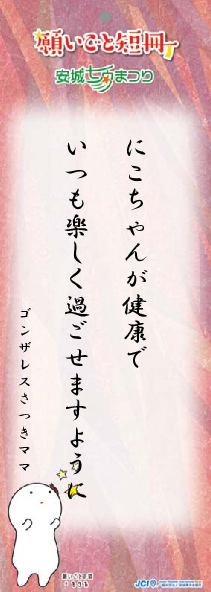 願いごと短冊
安城七夕まつり
にこちゃんが健康で
いつも楽しく過ごせますように
ゴンザレスさつきママ
願いごと短冊
JCI